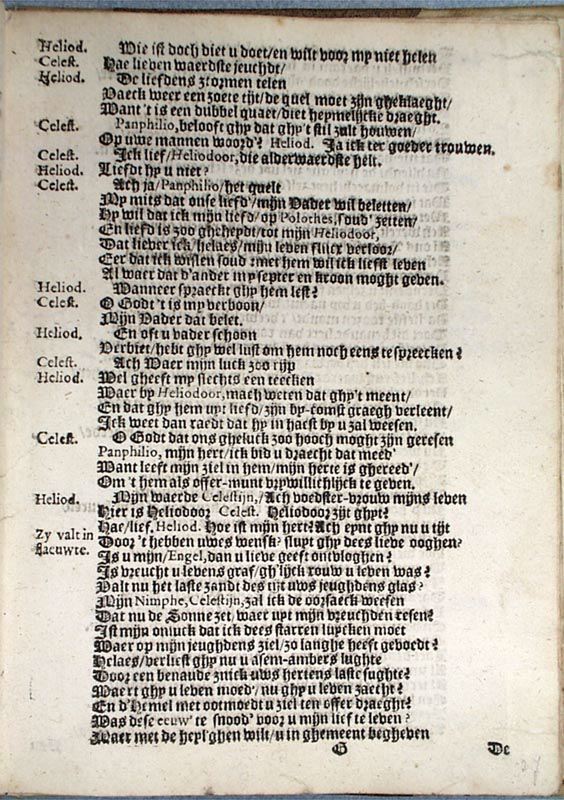 Heliod. Wie ist doch diet u doet/en wilt voor my niet helen
Celest. Hae lieven waerdste jeuchdt/
Heliod. De liefdens ztormen telen
Vaeck weer een zoete tijt/de quel moet zijn gheklaeght/
Want 't is een dubbel quaet/diet heymelijcke draeght.
Celest. Panphilio, belooft ghy dat ghy't stil zult houwen/
Op uwe mannen woord? Heliod. Ja ick ter goeder trouwen.
Celest. Ick lief/Heliodoor, die alderwaerdste helt.
Heliod. Liefdt hy u niet?
Celest. Ach ja/Panphilio/het quelt
My mits dat onse liefd'/mijn Vader wil beletten/
Hy wil dat ick mijn liefd/op Poloches, soud' zetten/
En liefd is zoo ghehept/tot mijn Heliodoor,
Dat liever ick/helaes/mijn leven flucx verloor/
Eer dat ick wislen soud: met hem wil ick liefst leven
Al waer dat d'ander my septer en kroon moght geven.
Heliod. Wanneer spraeckt ghy hem lest?
Celest. O Godt 't is my verboon/
Mijn Vader dat belet.
Heliod. En oft u vader schoon
Verbiet/hebt ghy wel lust om hem noch eens te spreecken?
Celest. Ach Waer mijn luck zoo rijp
Heliod. Wel gheeft my slechts een teecken
Waer by Heliodoor, mach weten dat ghy't meent/
En dat ghy hem uyt liefd/zijn by-comst graegh verleent/
Ick weet dan raedt dat hy in haest by u zal weesen.
Celest. O Godt dat ons gheluck zoo hooch moght zijn geresen
Panphilio, mijn hert/ick bid u draecht dat meed'
Want leeft mijn ziel in hem/mijn herte is ghereed'/
Om 't hem als offer-munt vrywillichlijck te geven.
Heliod. Mijn waerde Celestijn,/Ach voedster-vrouw mijns leven
Hier is Heliodoor Celest. Heliodoor zijt ghy?
Zy valt in flaeuwte. Hae/lief. Heliod. Hoe ist mijn hert? Ach eynt ghy nu u tijt
Door 't hebben uwes wensk? sluyt ghy dees lieve ooghen?
Is u mijn/Engel, dan u lieve geest ontvloghen?
Is vreucht u levens graf/gh'lijck rouw u leven was?
Valt nu het laste zandt des tijt uws jeughdens glas?
Mijn Nimphe, Celestijn, zal ick de oorsaeck weesen
Dat nu de Sonne zet/waer uyt mijn vreuchden resen?
Ist mijn onluck dat ick dees starren luycken moet
Waer op mijn jeughdens ziel/zo langhe heeft gevoedt?
Helaes/verliest ghy nu u asem-ambers lughte
Door een benaude znick uws hertens laste sughte?
Waert ghy u leven moed'/nu ghy u leven zaeght?
En d'Hemel met ootmoedt u ziel ten offer draeght?
Was dese eeuw' te snood' voor u mijn lief te leven?
Waer met de heyl'ghen wilt/u in ghemeent begheven
G De